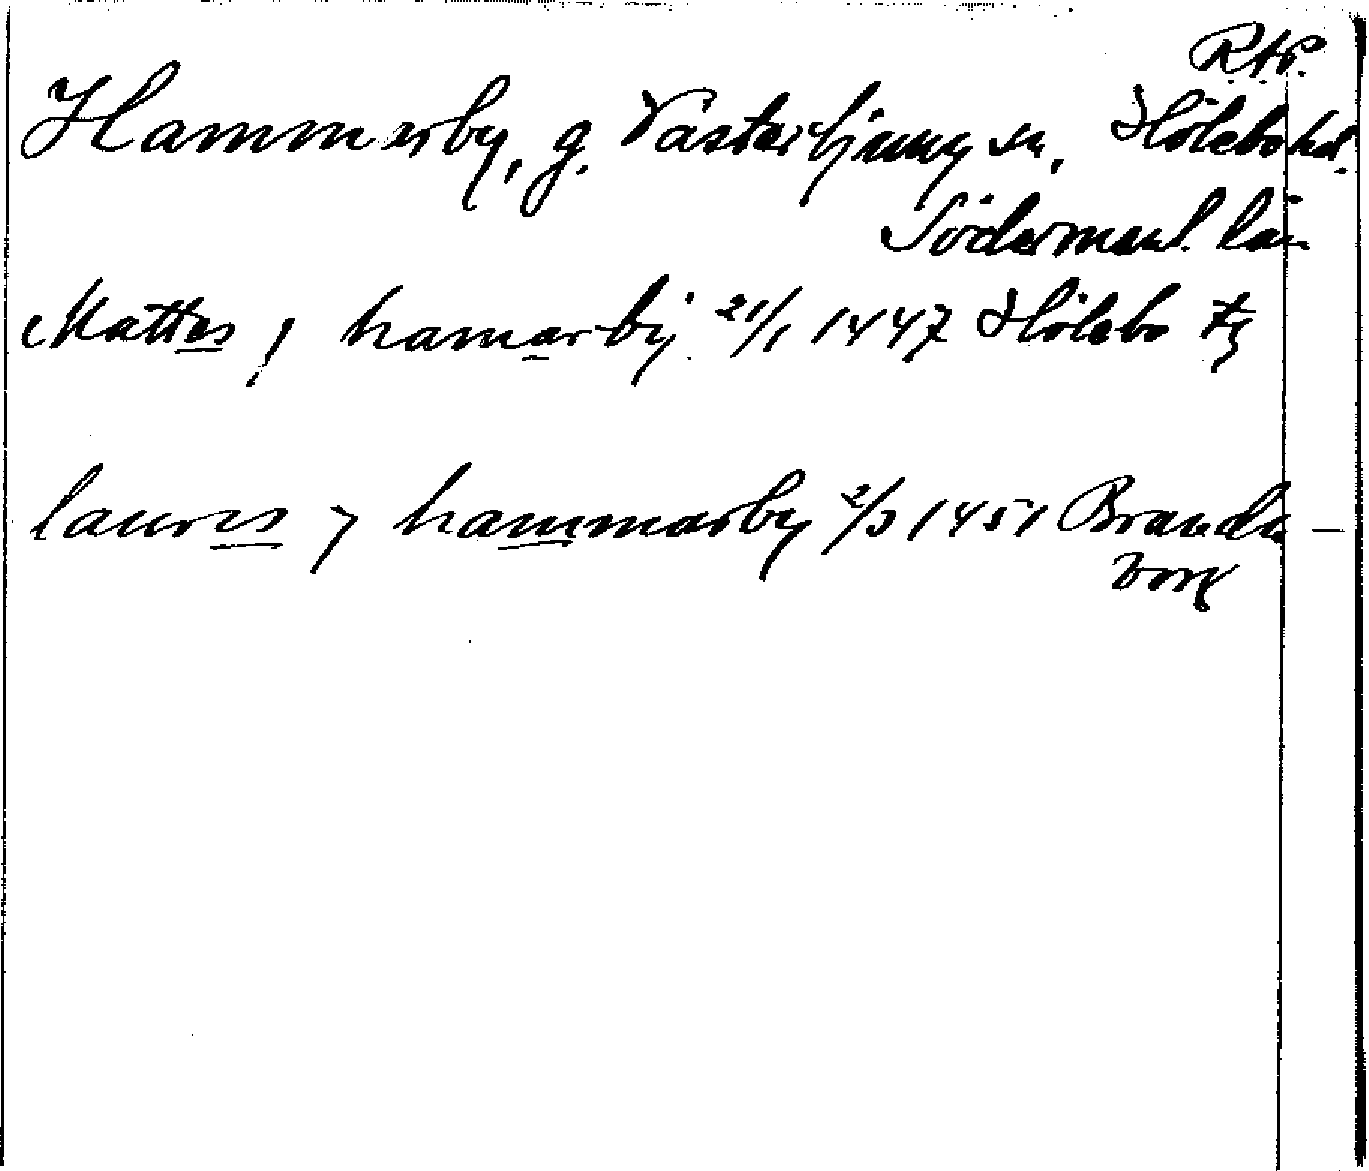 R.A.P.
Hammerby, g. Västerljung sn, Hölebo hd.
Södermanl. län
Mattes j hamarby 21/1 1447 Hölebo tg
laurens j hammarby 2/3 1451 Branda–
borg